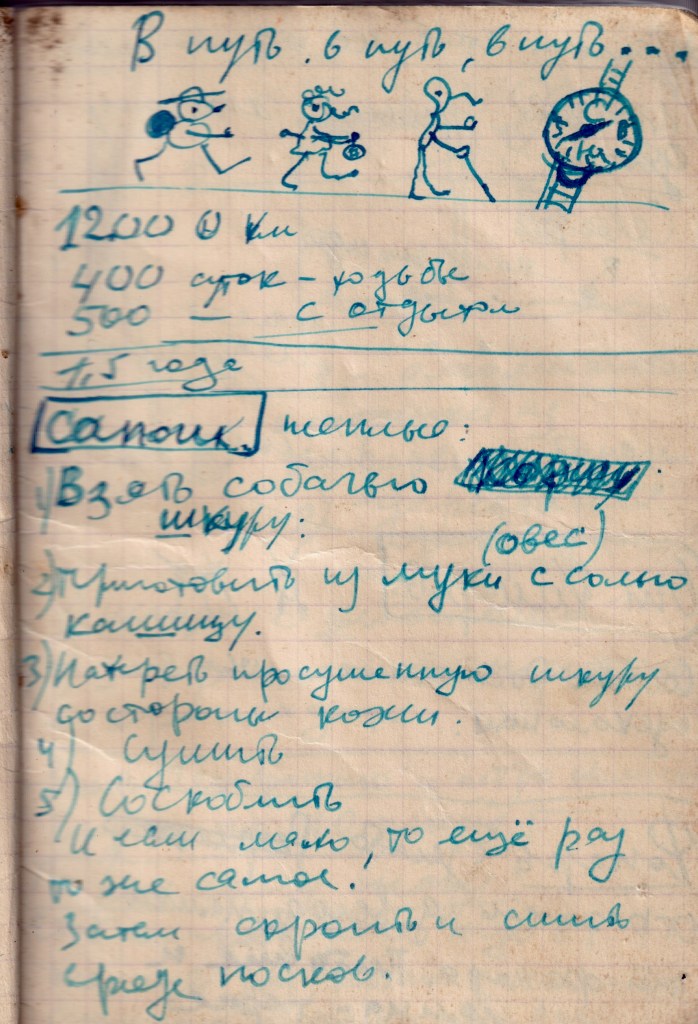 В путь, в путь, в путь...
С
Ю
12000 км
400 суток – ходьбы
500 — с отдыхом
1,5 года
Сапоги теплые:
1) Взять собачью
шкуру:
(овес)
2) Приготовить из муки с солью
кашицу.
3) Натереть просушенную шкуру
со стороны кожи.
4) Сушить
5) Соскоблить
И если мало, то ещё раз
то же самое.
Затем скроить и сшить
вроде носков.